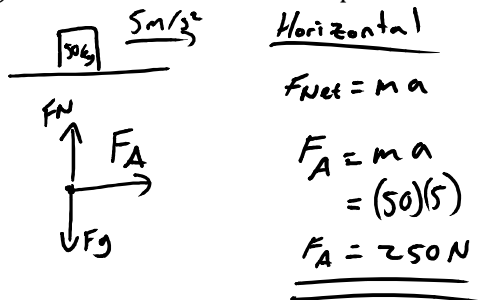 5m/s²
50kg
FN
FA
Fg
Horizontal
FNet = ma
FA = ma
= (50)(5)
FA = 250N